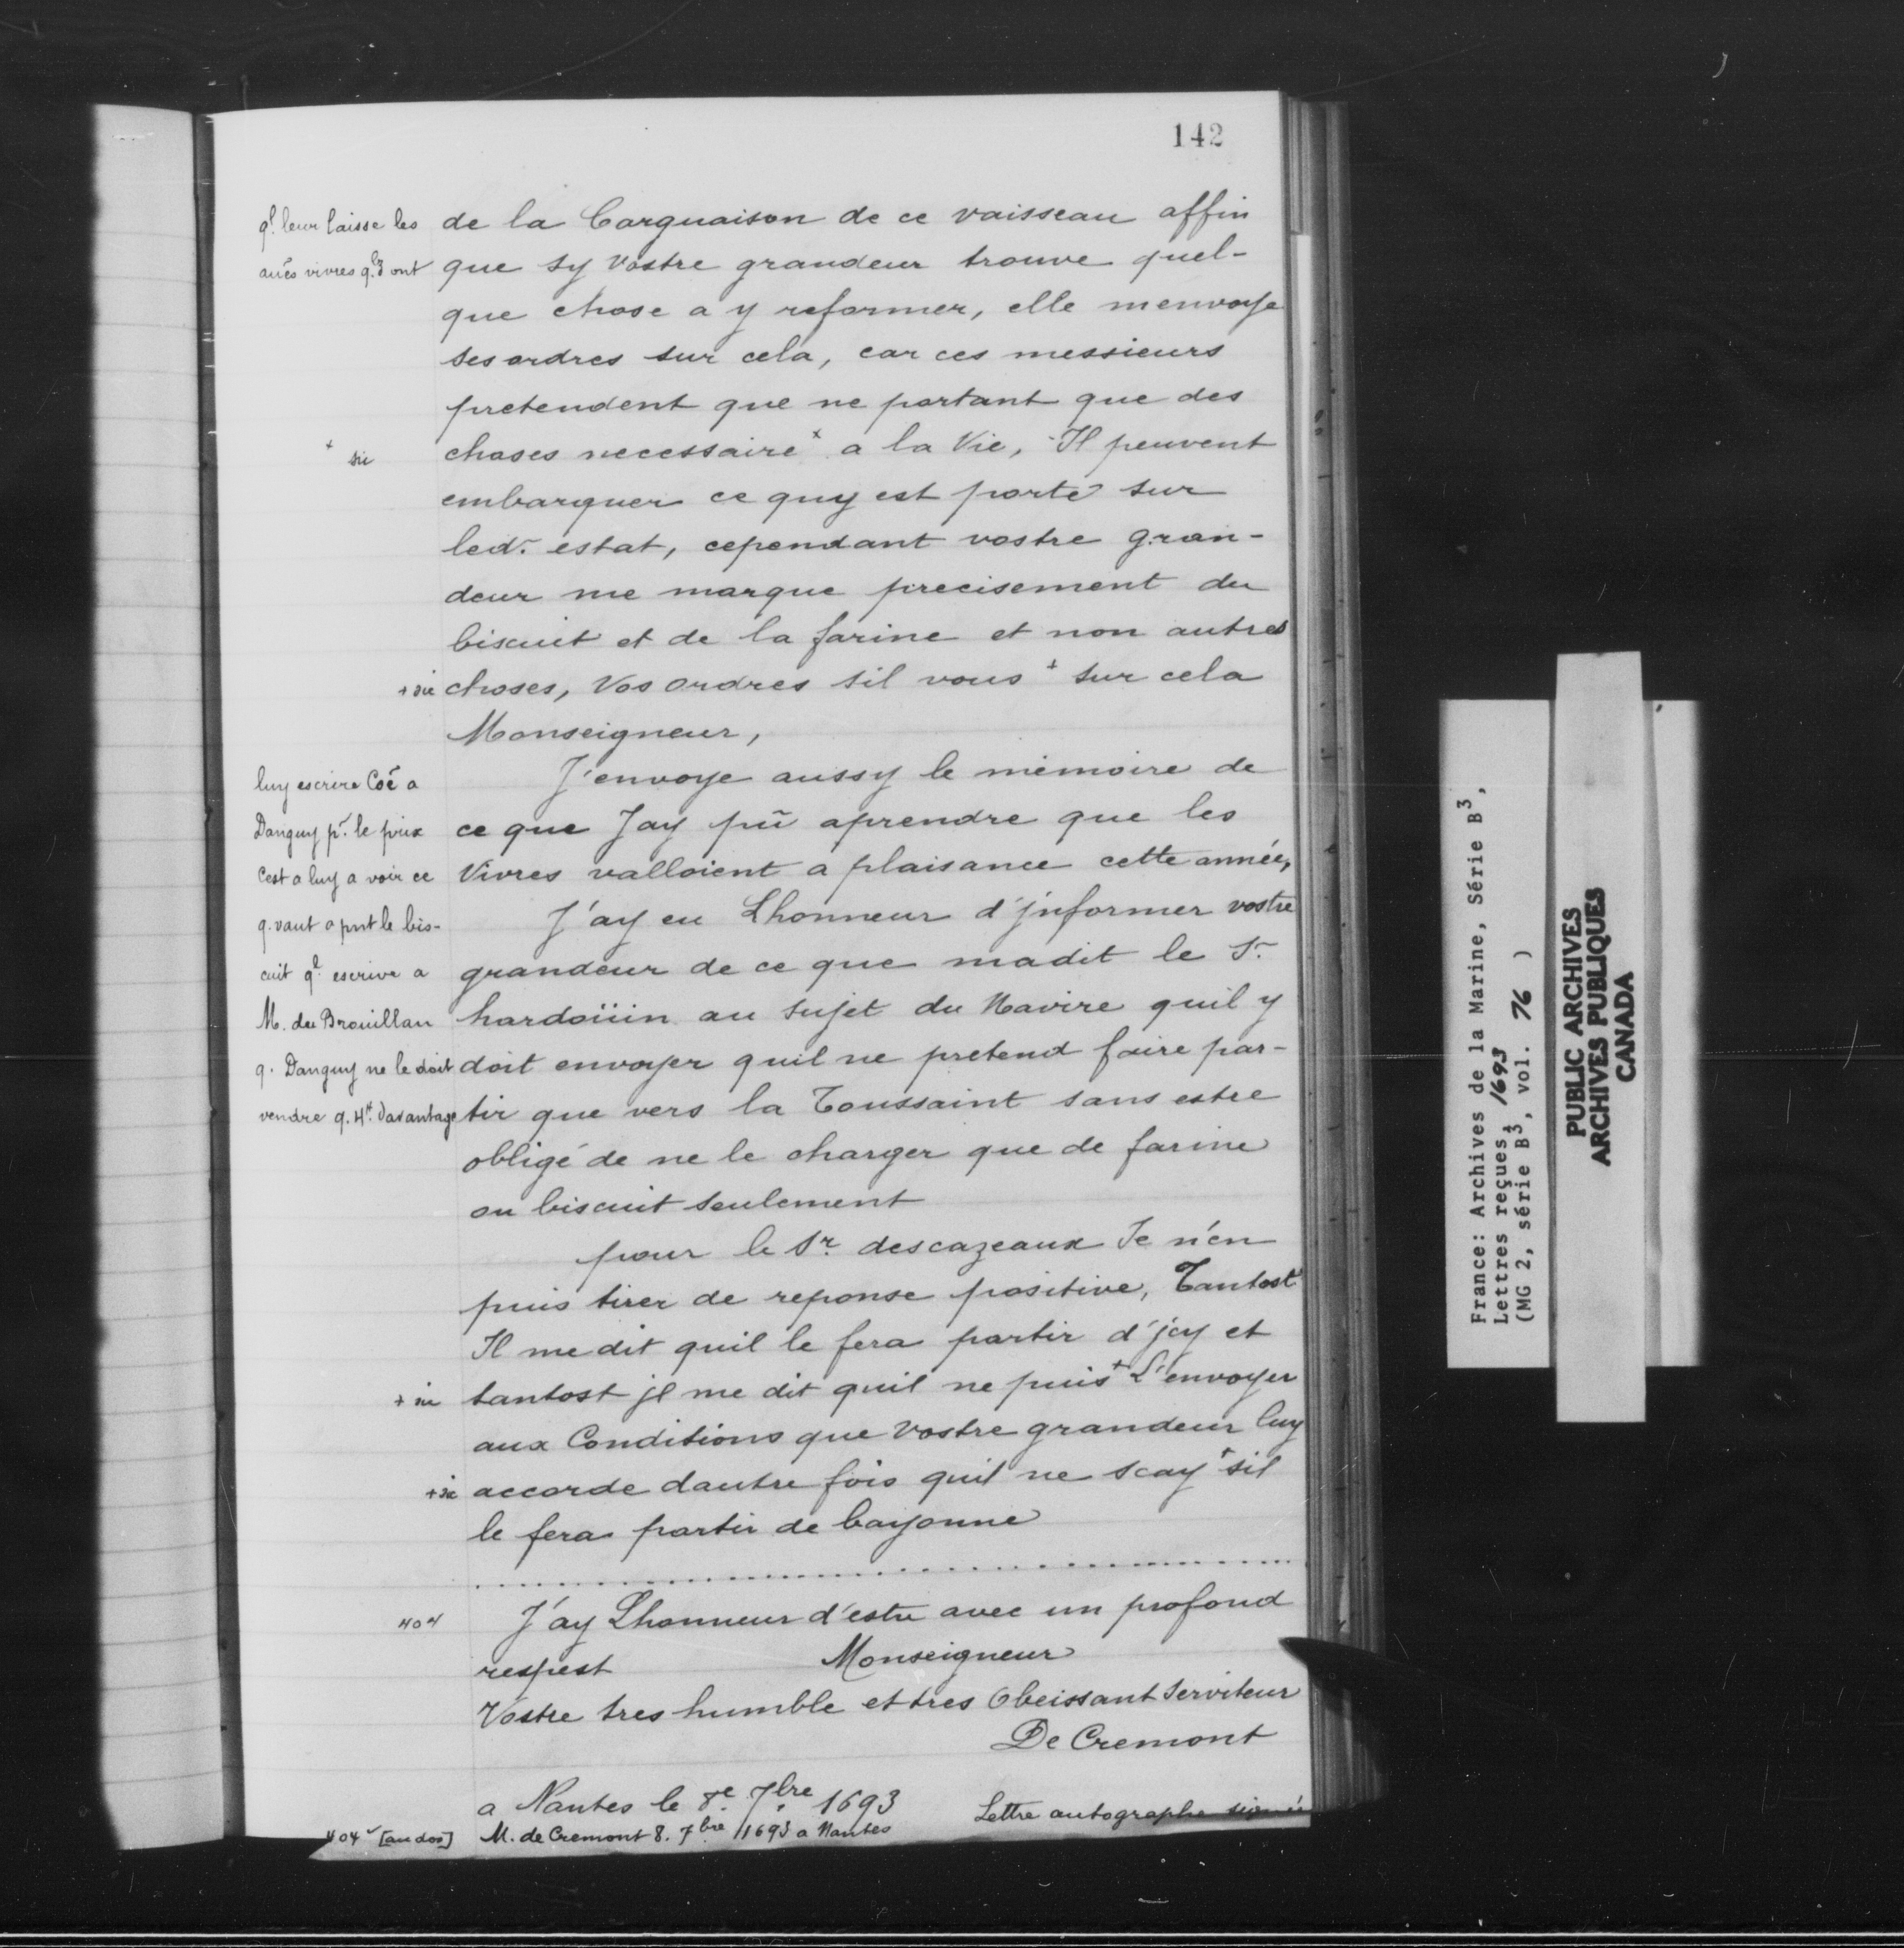 142
ql. leur laisse les
aues vivres qlz ont
de la Carguaison de ce vaisseau affin
que sy vostre grandeur trouve quel-
que chose a y reformer, elle menvoye
ses ordres sur cela, car ces messieurs
pretendent que ne portant que des
+ sic
choses necessaire x a la Vie, Il peuvent
embarquer ce quy est porté sur
led. estat, cependant vostre gran-
deur me marque precisement du
biscuit et de la farine et non autres
+ sic
choses, Vos ordres sil vous + sur cela
Monseigneur,
luy escrire Coe a
Danguy pr. le prix
Cest a luy a voir ce
q. vaut a pnt le bis-
cuit ql escrive a
M. de Brouillan
q. Danguy ne le doit
vendre q. 4tt davantage
J'envoye aussy le mémoire de
ce que Jay pû aprendre que les
Vivres valloient a plaisance cette année,
J'ay eu Lhonneur d'jnformer vostre
grandeur de ce que madit le Sr
hardoüin au sujet du Navire quil y
doit envoyer quil ne pretend faire par-
tir que vers la Toussaint sans estre
obligé de ne le charger que de farine
ou biscuit seulement
pour le Sr. descazeaux Je n'en
puis tirer de reponse positive, Tantost
Il me dit quil le fera partir d'jcy et
+ sic
tantost jl me dit quil ne puis + L'envoyer
aux Conditions que Vostre grandeur luy
+ sic
accorde dautre fois quil ne scay + sil
le fera partir de bayonne
........................................
404
J'ay Lhonneur d'estre avec un profond
respest Monseigneur
Vostre tres humble et tres Obeissant Serviteur
De Cremont
a Nantes le 8e. 7bre 1693
Lettre autographe signée
404v [au dos]
M. de Cremont 8. 7bre 1693 a Nantes
France: Archives de la Marine, Série B3,
Lettres reçues, 1693
(MG 2, série B3, vol. 76 )
PUBLIC ARCHIVES
ARCHIVES PUBLIQUES
CANADA